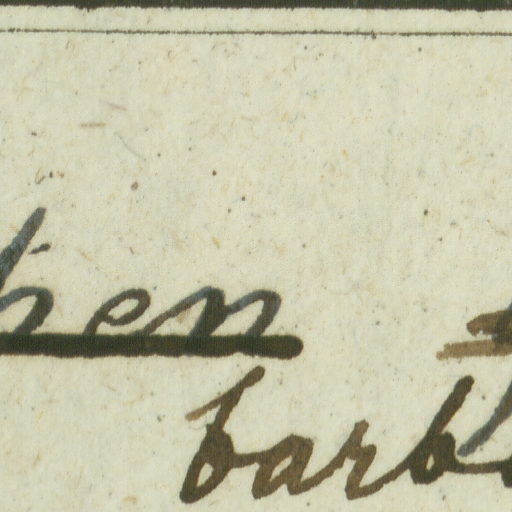 hen
barb